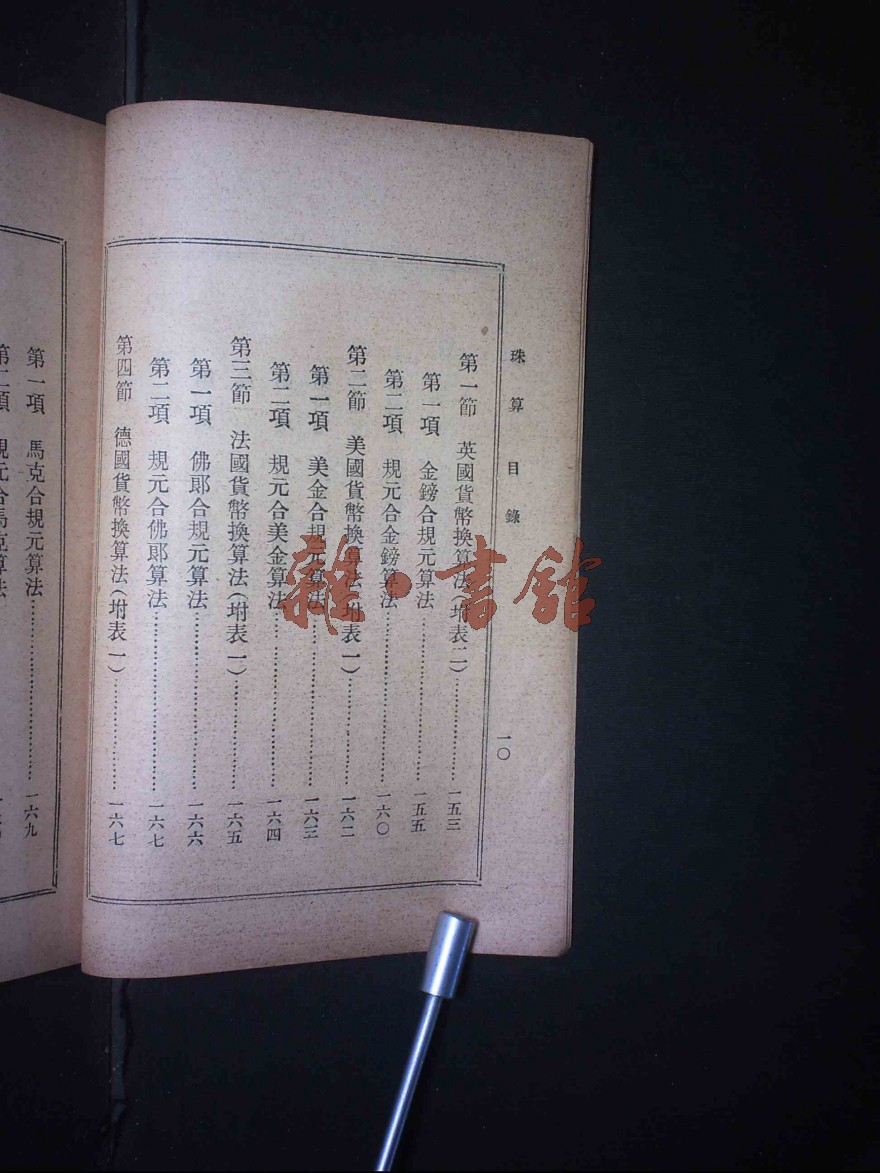 珠算目錄
一〇
第一節 英國貨幣換算法(坿表二)…………一五三
第一項 金鎊合規元算法…………一五五
第二項 規元合金鎊算法…………一六〇
第二節 美國貨幣換算法(坿表一)…………一六二
第一項 美金合規元算法…………一六三
第二項 規元合美金算法…………一六四
第三節 法國貨幣換算法(坿表一)…………一六五
第一項 佛郎合規元算法…………一六六
第二項 規元合佛郎算法…………一六七
第四節 德國貨幣換算法(坿表一)…………一六七
第一項 馬克合規元算法…………一六九
第二項 規元合馬克算法
雜·書館